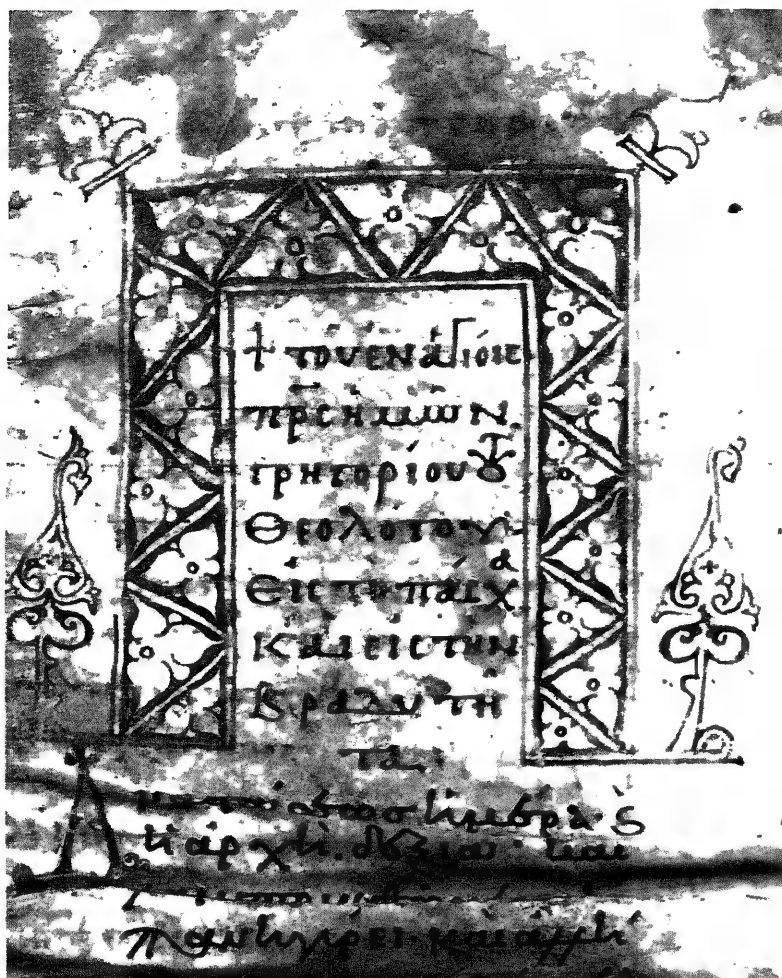 † τοῦ ἐν ἁγίοις
πρς ἡμῶν
γρηγορίου τοῦ
θεολόγου·
εἰς τὸ πάσχα
καὶ εἰς τὴν
βραδυτῆ
τα·
Ἀναστάσεως ἡμέρα· καὶ
ἡ ἀρχὴ δεξιά· καὶ
πανηγύρει· καὶ ἀλλή